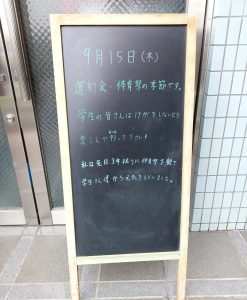 9月15日(木)
運動会・体育祭の季節です。
学生の皆さんはけがをしないよう
楽しんで行って下さい!
私は先日3年振りに体育祭
学生さん達から元気をもらいました。